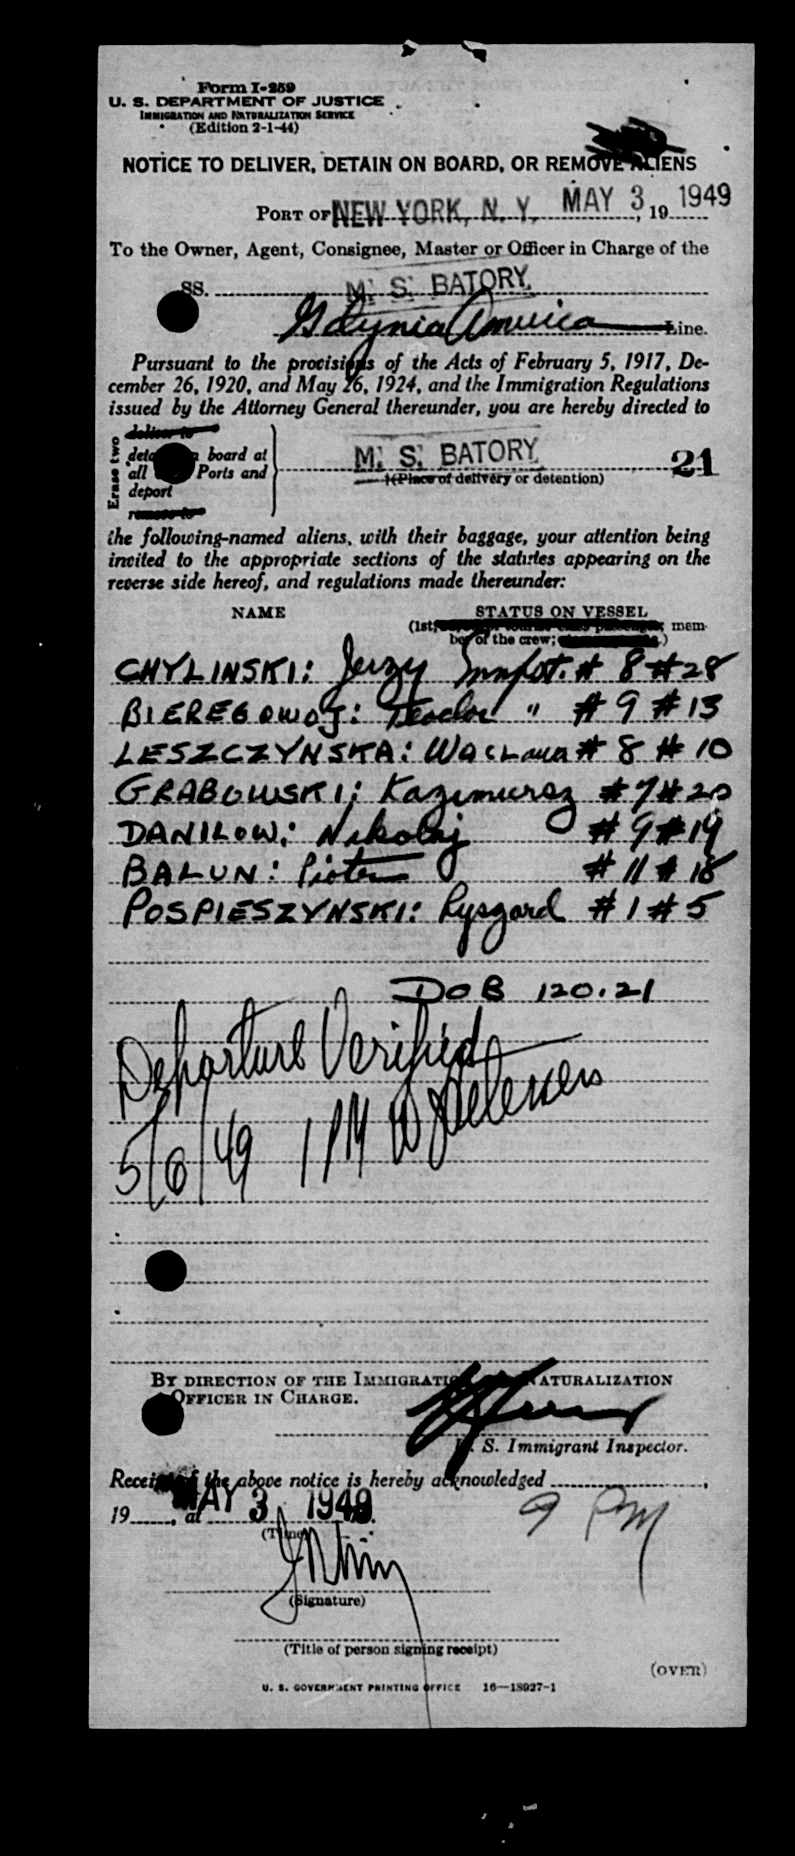 Form I-259
U. S. DEPARTMENT OF JUSTICE
IMMIGRATION AND NATURALIZATION SERVICE
(Edition 2-1-44)
NOTICE TO DELIVER, DETAIN ON BOARD, OR REMOVE ALIENS
PORT OF NEW YORK, N. Y. MAY 3, 19 1949
To the Owner, Agent, Consignee, Master or Officer in Charge of the
SS. M. S. BATORY.
Gdynia America Line.
Pursuant to the provisions of the Acts of February 5, 1917, De-
cember 26, 1920, and May 26, 1924, and the Immigration Regulations
issued by the Attorney General thereunder, you are hereby directed to
Erase two
deliver to
board at
all Ports and
deport
remove to
M. S. BATORY 21
(Place of delivery or detention)
the following-named aliens, with their baggage, your attention being
invited to the appropriate sections of the statutes appearing on the
reverse side hereof, and regulations made thereunder:
NAME STATUS ON VESSEL
(1st, mem-
ber of the crew; .)
CHYLINSKI: Jerzy # 8 # 28
BIEREGOWOJ: Teodor " # 9 # 13
LESZCZYNSKA: Waclawa # 8 # 10
GRABOWSKI: Kazimierz # 7 # 20
DANILOW: Nikolaj # 9 # 19
BALUN: Piotr # 11 # 18
POSPIESZYNSKI: Ryszard # 1 # 5
DOB 120.21
Departure Verified
5/6/49 1 PM
BY DIRECTION OF THE IMMIGRATION NATURALIZATION
OFFICER IN CHARGE.
U. S. Immigrant Inspector.
Receipt of the above notice is hereby acknowledged ,
19 , at MAY 3 1949.
9 PM
(Time)
(Signature)
(Title of person signing receipt)
(OVER)
U. S. GOVERNMENT PRINTING OFFICE 16—18927-1